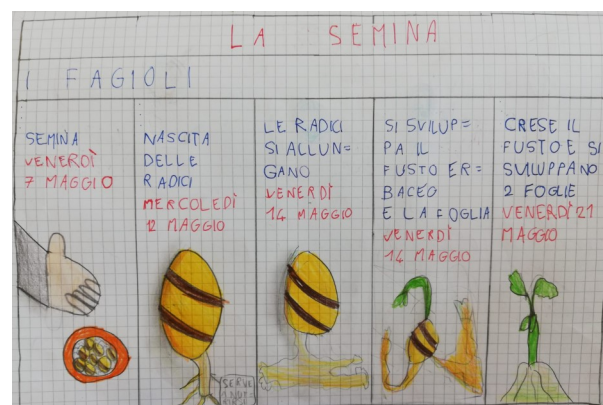 LA SEMINA
I FAGIOLI
SEMINA
VENERDÌ
7 MAGGIO
NASCITA
DELLE
RADICI
MERCOLEDÌ
12 MAGGIO
LE RADICI
SI ALLUN=
GANO
VENERDÌ
14 MAGGIO
SI SVILUP=
PA IL
FUSTO ER=
BACEO
E LA FOGLIA
VENERDÌ
14 MAGGIO
CRESE IL
FUSTO E SI
SVILUPPANO
2 FOGLIE
VENERDÌ 21
MAGGIO
SERVE